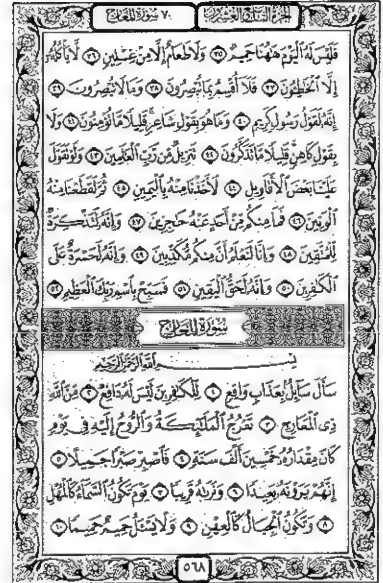 الجزء التاسع والعشرون ٧٠ سورة المعارج
فَلَيْسَ لَهُ الْيَوْمَ هَٰهُنَا حَمِيمٌ ٣٥ وَلَا طَعَامٌ إِلَّا مِنْ غِسْلِينٍ ٣٦ لَّا يَأْكُلُهُ
إِلَّا الْخَاطِئُونَ ٣٧ فَلَا أُقْسِمُ بِمَا تُبْصِرُونَ ٣٨ وَمَا لَا تُبْصِرُونَ ٣٩
إِنَّهُ لَقَوْلُ رَسُولٍ كَرِيمٍ ٤٠ وَمَا هُوَ بِقَوْلِ شَاعِرٍ قَلِيلًا مَّا تُؤْمِنُونَ ٤١ وَلَا
بِقَوْلِ كَاهِنٍ قَلِيلًا مَّا تَذَكَّرُونَ ٤٢ تَنزِيلٌ مِّن رَّبِّ الْعَالَمِينَ ٤٣ وَلَوْ تَقَوَّلَ
عَلَيْنَا بَعْضَ الْأَقَاوِيلِ ٤٤ لَأَخَذْنَا مِنْهُ بِالْيَمِينِ ٤٥ ثُمَّ لَقَطَعْنَا مِنْهُ
الْوَتِينَ ٤٦ فَمَا مِنكُم مِّنْ أَحَدٍ عَنْهُ حَاجِزِينَ ٤٧ وَإِنَّهُ لَتَذْكِرَةٌ
لِّلْمُتَّقِينَ ٤٨ وَإِنَّا لَنَعْلَمُ أَنَّ مِنكُم مُّكَذِّبِينَ ٤٩ وَإِنَّهُ لَحَسْرَةٌ عَلَى
الْكَافِرِينَ ٥٠ وَإِنَّهُ لَحَقُّ الْيَقِينِ ٥١ فَسَبِّحْ بِاسْمِ رَبِّكَ الْعَظِيمِ ٥٢
سورة المعارج
بِسْمِ اللَّهِ الرَّحْمَٰنِ الرَّحِيمِ
سَأَلَ سَائِلٌ بِعَذَابٍ وَاقِعٍ ١ لِّلْكَافِرِينَ لَيْسَ لَهُ دَافِعٌ ٢ مِّنَ اللَّهِ
ذِي الْمَعَارِجِ ٣ تَعْرُجُ الْمَلَائِكَةُ وَالرُّوحُ إِلَيْهِ فِي يَوْمٍ
كَانَ مِقْدَارُهُ خَمْسِينَ أَلْفَ سَنَةٍ ٤ فَاصْبِرْ صَبْرًا جَمِيلًا ٥
إِنَّهُمْ يَرَوْنَهُ بَعِيدًا ٦ وَنَرَاهُ قَرِيبًا ٧ يَوْمَ تَكُونُ السَّمَاءُ كَالْمُهْلِ
٨ وَتَكُونُ الْجِبَالُ كَالْعِهْنِ ٩ وَلَا يَسْأَلُ حَمِيمٌ حَمِيمًا ١٠
٥٦٨